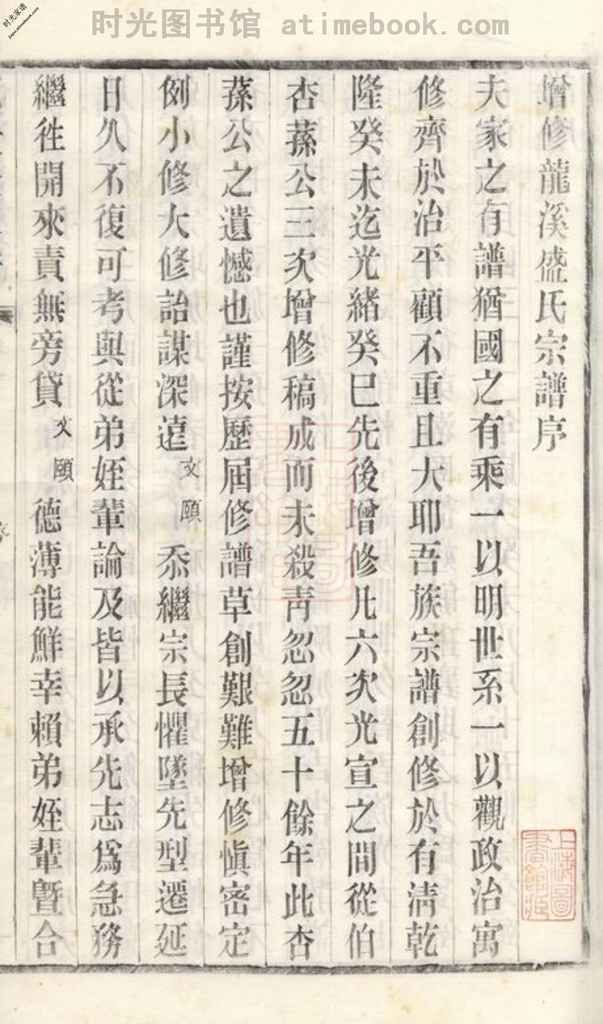 时光图书馆 atimebook.com
时光家谱
www.atimebook.com
增修龍溪盛氏宗譜序
夫家之有譜猶國之有乘一以明世系一以觀政治寓
修齊於治平顧不重且大耶吾族宗譜創修於有清乾
隆癸未迄光緒癸巳先後增修凡六次光宣之間從伯
杏蓀公三次增修稿成而未殺靑忽忽五十餘年此杏
蓀公之遺憾也謹按歷屆修譜草創艱難增修愼密定
例小修大修詒謀深遠文頤忝繼宗長懼墜先型遷延
日久不復可考與從弟姪輩論及皆以承先志爲急務
繼徃開來責無旁貸文頤德薄能鮮幸賴弟姪輩曁合
上海圖書館藏